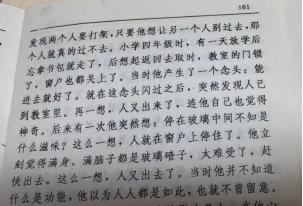 161
发现两个人要打架，只要他想让另一个人别过去，那
个人就真的过不去。小学四年级时，有一天放学后
忘拿书包就走了，后想起返回去取时，教室的门锁
了，窗户也都关上了。当时他产生了一个念头：能
进去就好了。就在这念头闪过之后，突然发现人已
到教室里。再一想，人又出来了，连他自己也觉得
神奇。后来有一次他突然想，停在玻璃中间不知是
什么滋味？这么一想，人就在窗户上停住了。他立
刻觉得满身、满脑子都是玻璃碴子，太难受了，赶
快出去。这么一想，人又出去了。当时他并不知道
什么是功能，他以为人人都是如此，也就不曾留意。